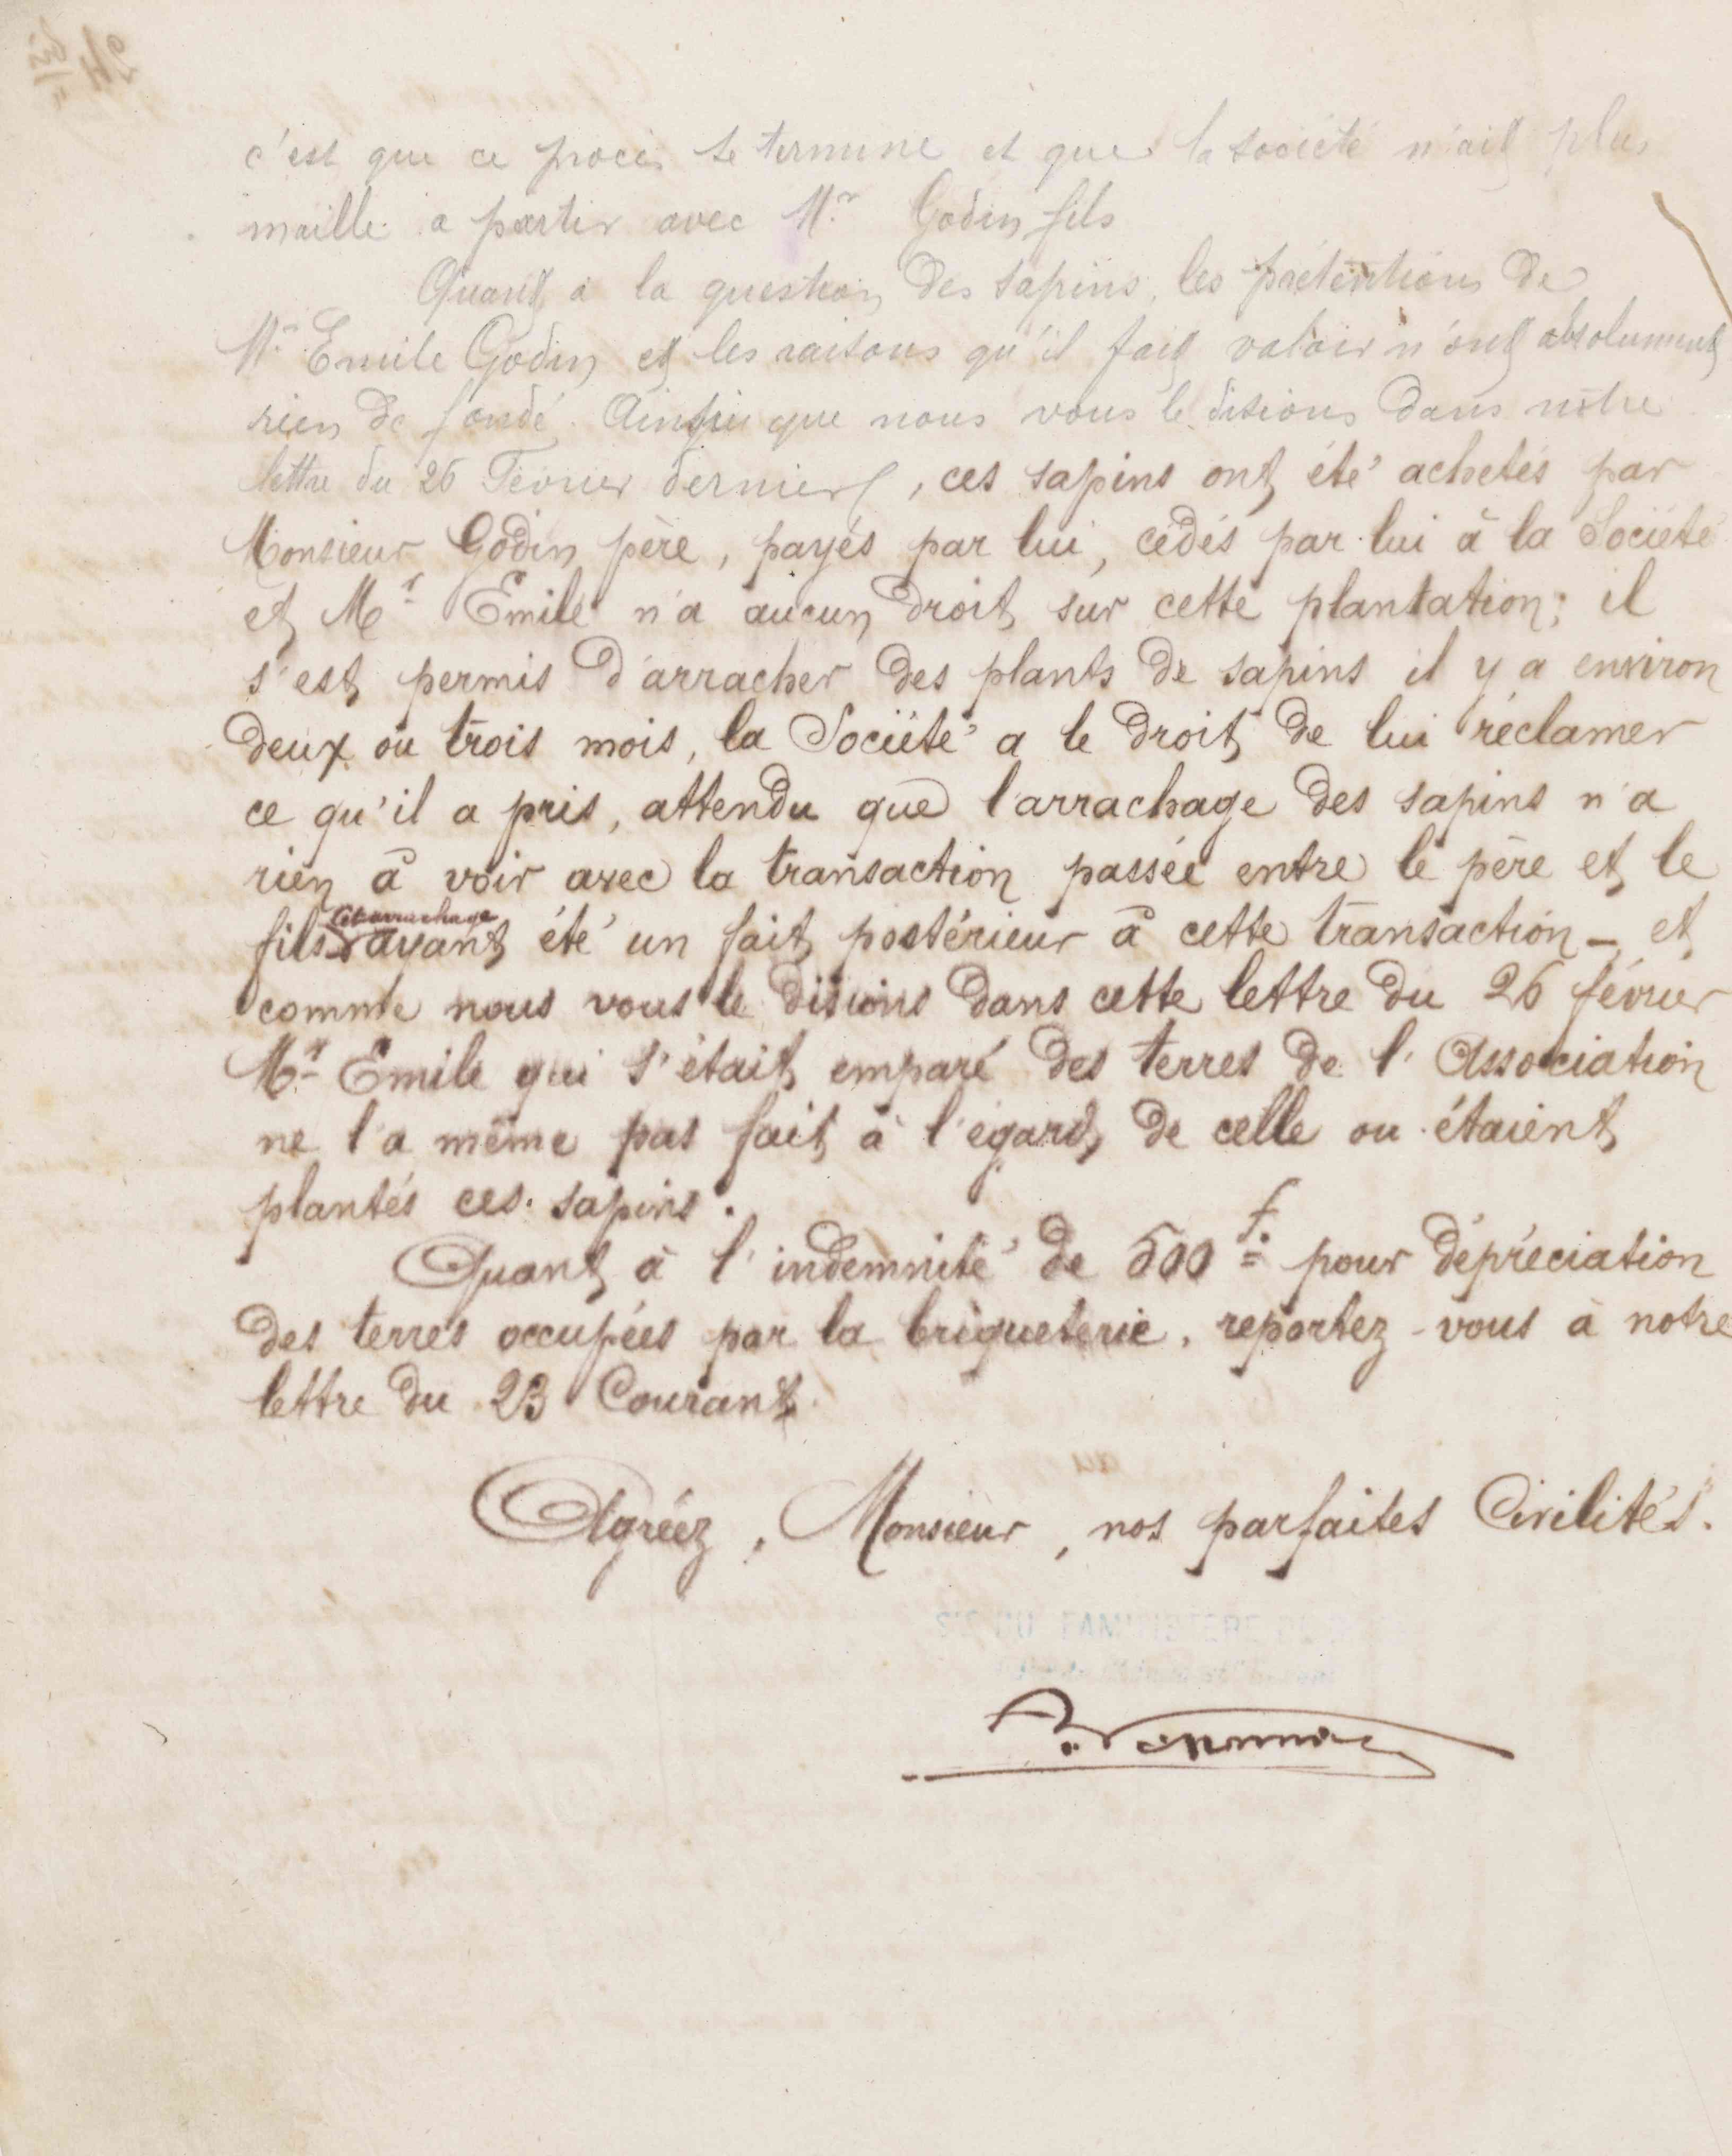 c'est que ce procès se termine et que la société n'ait plus
maille a partir avec Mr Godin fils
Quant a la question des sapins, les prétentions de
Mr Emile Godin et les raisons qu'il fait valoir n'ont absolument
rien de fondé. Ainsi que nous vous le disions dans notre
lettre du 26 Février dernier, ces sapins ont été achetés par
Monsieur Godin père, payés par lui, cédés par lui à la Société
et Mr Emile n'a aucun droit sur cette plantation; il
s'est permis d'arracher des plants de sapins il y a environ
deux ou trois mois, la Société a le droit de lui réclamer
ce qu'il a pris, attendu que l'arrachage des sapins n'a
rien à voir avec la transaction passée entre le père et le
cet arrachage
fils ayant été un fait postérieur à cette transaction _ et
comme nous vous le disions dans cette lettre du 26 février
Mr Emile qui s'était emparé des terres de l'Association
ne l'a même pas fait à l'égard de celle ou étaient
plantés ces sapins.
Quant à l'indemnité de 500 f. pour dépréciation
des terres occupées par la briqueterie, reportez-vous à notre
lettre du 23 Courant.
Agréez, Monsieur, nos parfaites Civilités.
STÉ DU FAMILISTERE DE